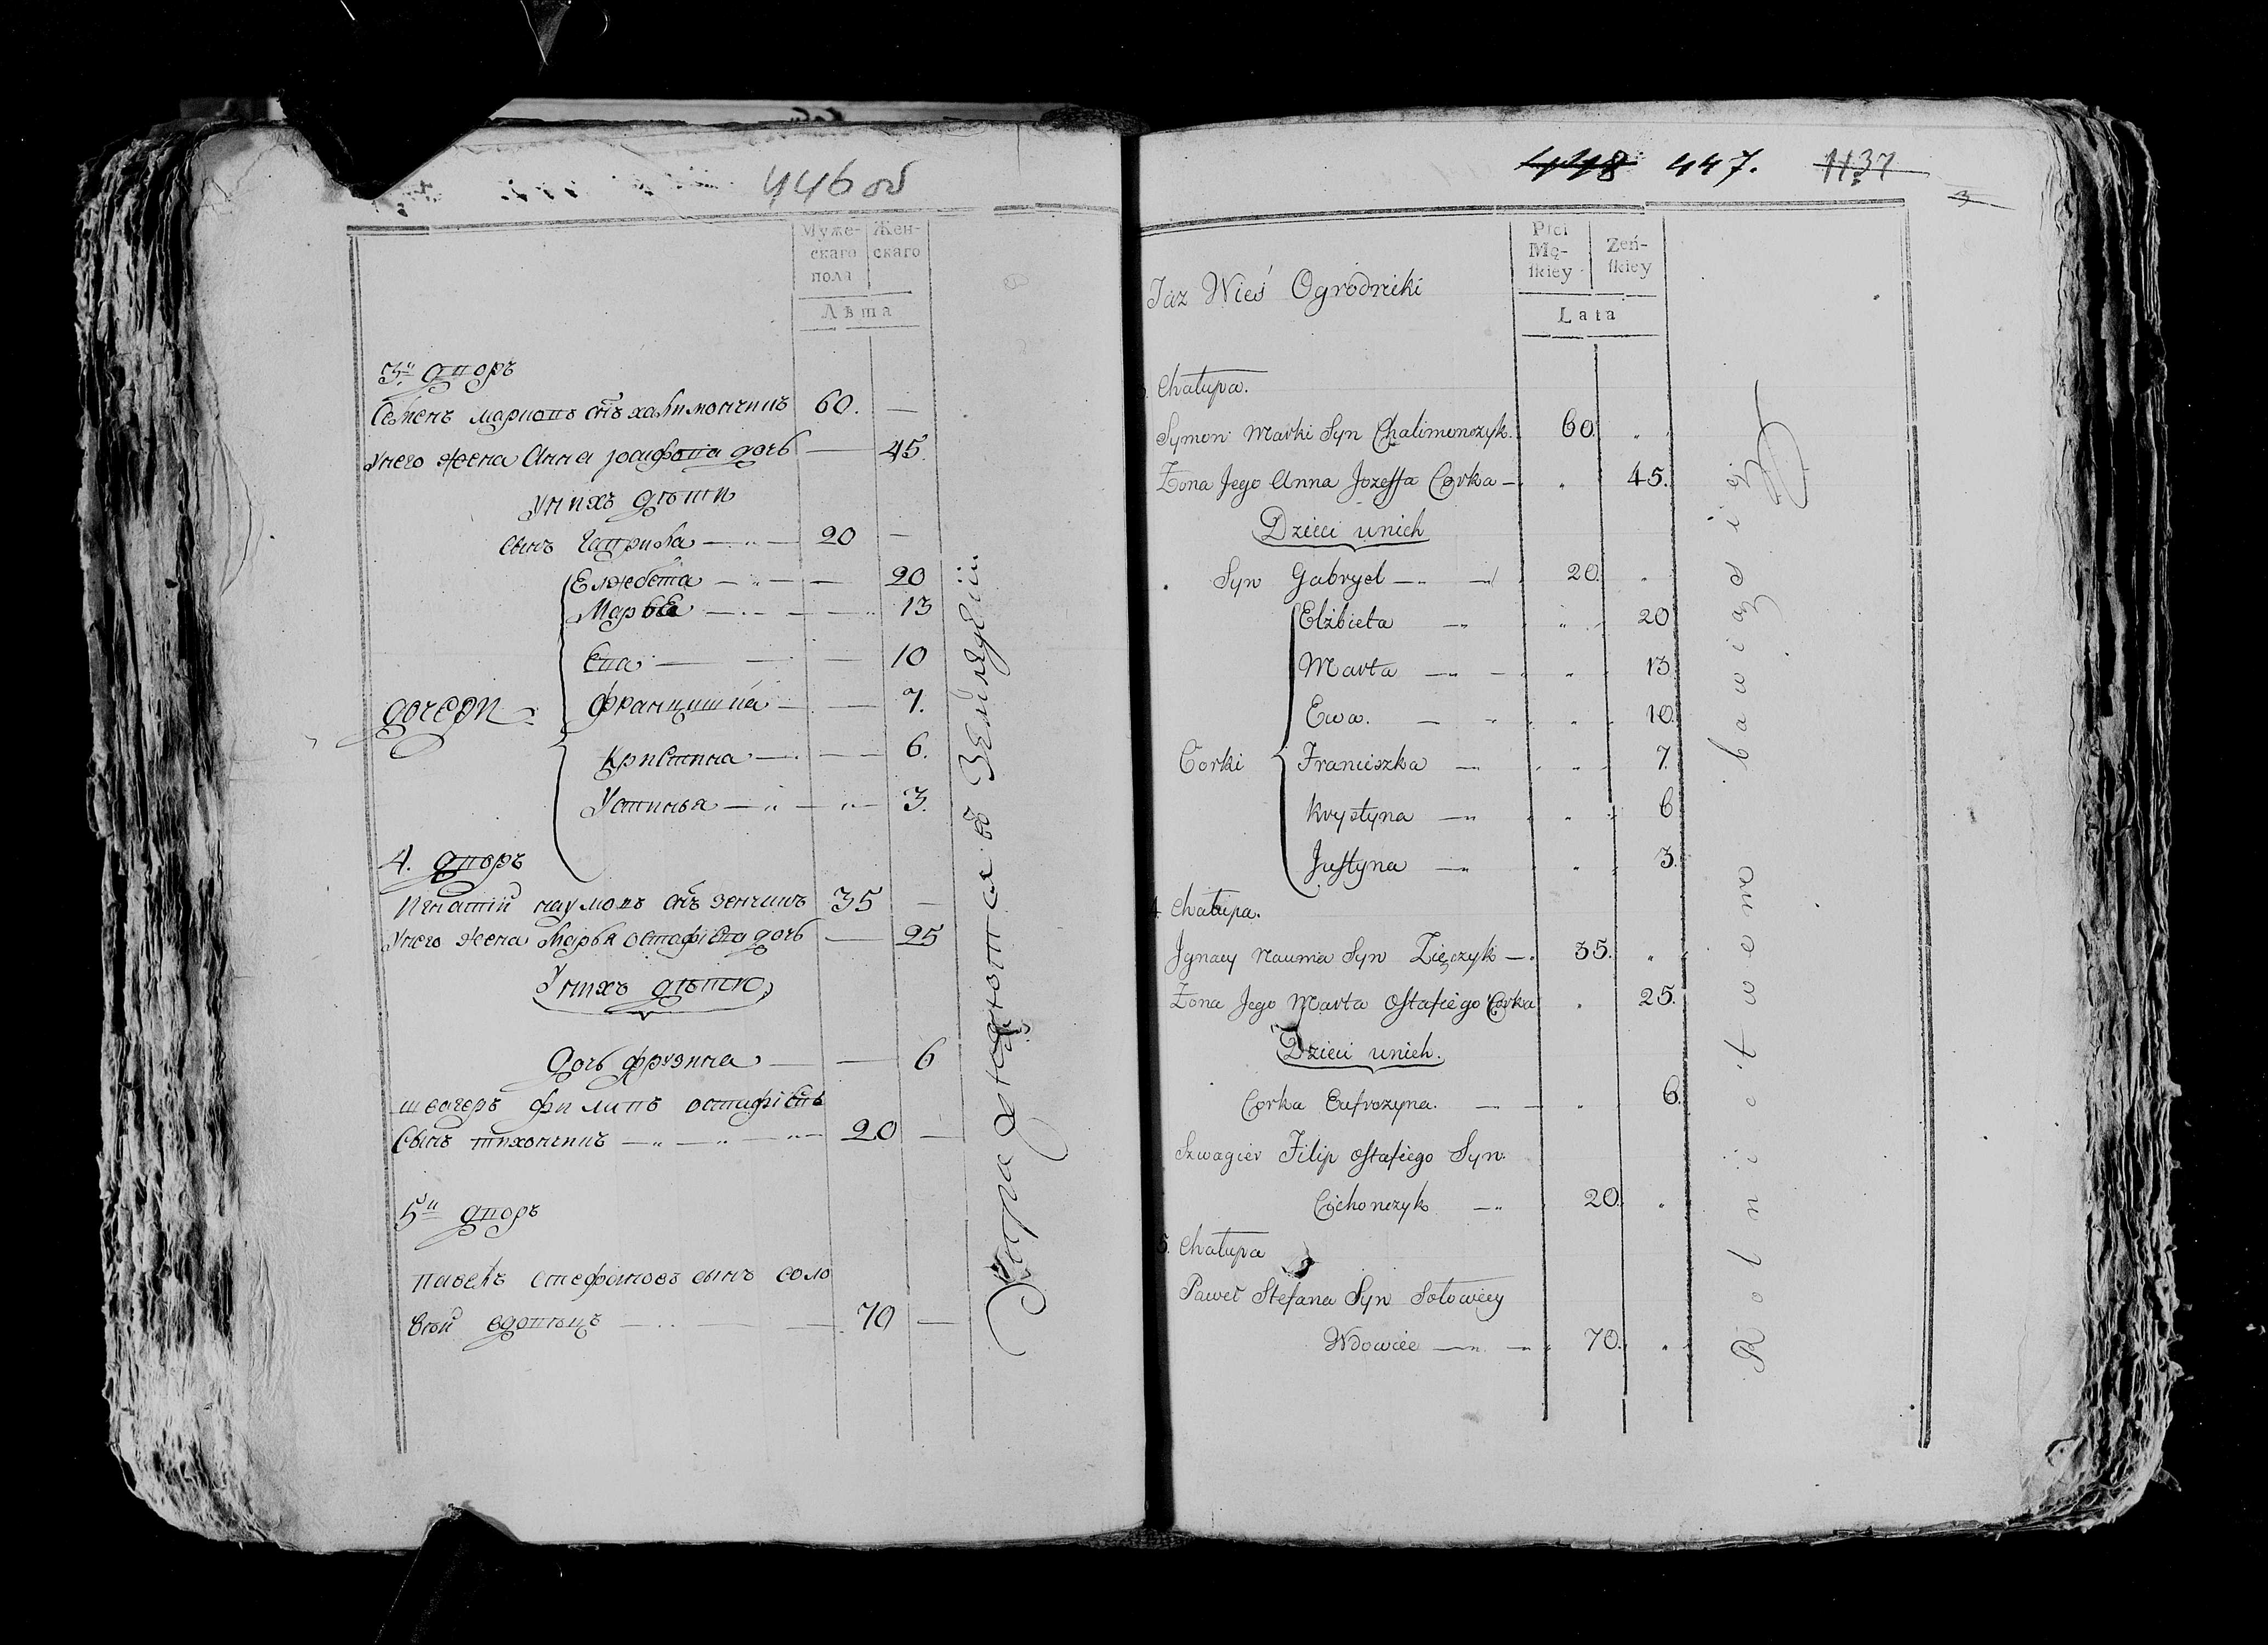 446 об
Муже-
скаго
пола
Жен-
скаго
Лѣта
3й дворъ
Семенъ марковъ снъ халимончикъ 60. —
Унего жена Анна јозефова дочь — 45.
Унихъ дѣти
Сынъ Гаврила — 20 —
Елжбета — 20
Марта — 13
Ева — 10
дочери
францишка — 7.
Кристина — 6.
Устинья — 3.
4. дворъ
Игнатій наумовъ снъ зенчикъ 35 —
Унего жена Марта остафіева дочь — 25
Унихъ дѣти
Дочь фрузина — 6
швагеръ филипъ остафіевъ
Сынъ тихончикъ — 20 —
5й дворъ
павелъ стефановъ сынъ соло
вѣй вдовецъ — 70 —
448 447. 1137
3
Płci
Mę-
skiey
Żeń-
skiey
Lata
Taż Wieś Ogrodniki
Chałupa.
Symon Marki Syn Chalimonczyk. 60. "
Żona Jego Anna Jozeffa Corka — " 45.
Dzieci unich
Syn Gabryel — 20. "
Elżbieta — " 20
Marta — " 13
Ewa. — " 10.
Corki
Franciszka — " 7.
Krystyna — " 6
Justyna — " 3.
4 Chałupa.
Jgnacy Nauma Syn Zięczyk — 35. "
Żona Jego Marta Ostafiego Corka " 25.
Dzieci unich.
Corka Eufrozyna. — " 6.
Szwagier Filip Ostafiego Syn
Cichonczyk — 20. "
5. Chałupa
Paweł Stefana Syn Sołowiey
Wdowiec — 70. "
Rolnictwem bawią się